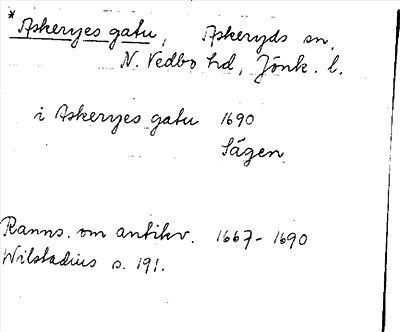 * Askeryes gatu, Askeryds sn,
N. Vedbo hd, Jönk. l.
i Askeryes gatu 1690
Sägen
Ranns. om antikv. 1667-1690
Wilstadius s. 191.